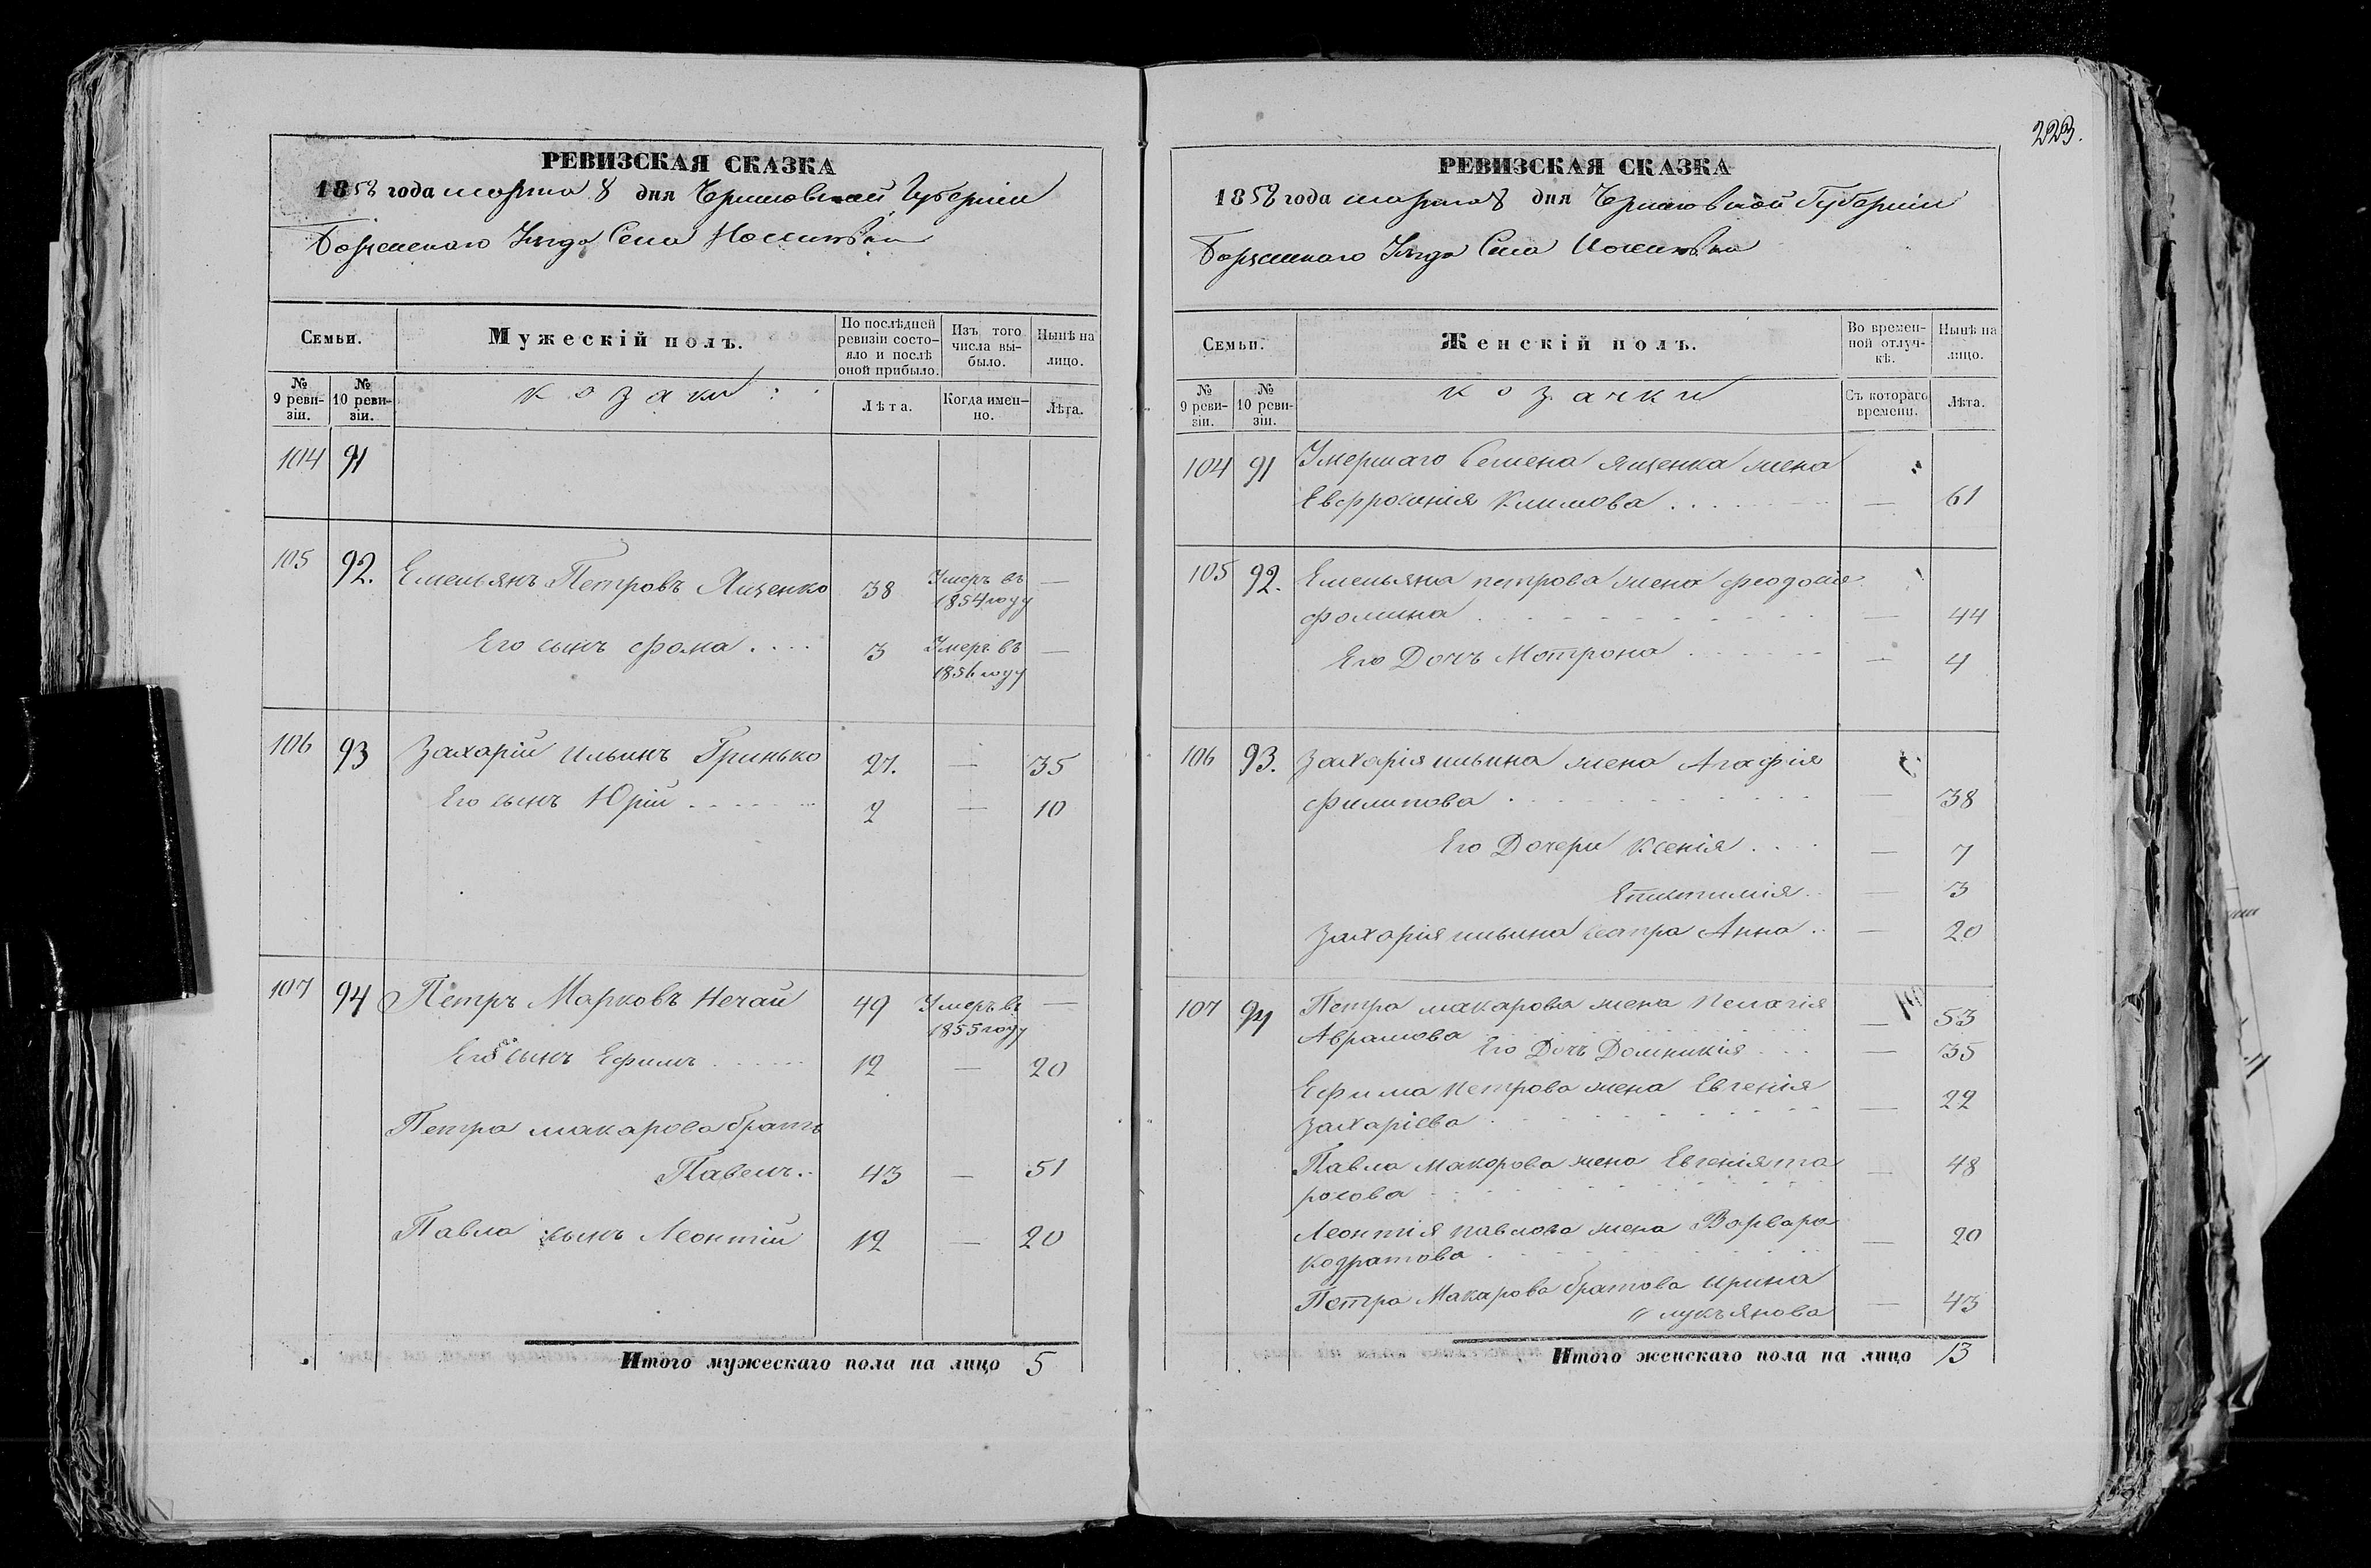 РЕВИЗСКАЯ СКАЗКА
1858 года марта 8 дня Черниговской Губернии
Борзенскаго Уезда Села
Семьи.
Мужескій полъ.
По послѣдней ревизіи состояло и послѣ оной прибыло.
Изъ того числа выбыло.
Нынѣ на лицо.
№ 9 ревизіи.
№ 10 ревизіи.
козаки:
Лѣта.
Когда именно.
Лѣта.
104 91
105 92. Емельянъ Петровъ Ященко 38 Умеръ въ 1854 году —
Его сынъ Фома .... 3 Умеръ въ 1856 году —
106 93 Захарій Ильинъ Гринько 27. — 35
Его сынъ Юрій ..... 2 — 10
107 94 Петръ Марковъ Нечай 49 Умеръ въ 1855 году —
Его сынъ Ефимъ ..... 12 — 20
Петра макарова братъ
Павелъ.. 43 — 51
Павла сынъ Леонтій 12 — 20
Итого мужескаго пола на лицо 5
223.
РЕВИЗСКАЯ СКАЗКА
1858 года марта 8 дня Черниговской Губерніи
Борзенскаго Уезда Села
Семьи.
Женскій полъ.
Во временной отлучкѣ.
Нынѣ на лицо.
№ 9 ревизіи.
№ 10 ревизіи.
козачки
Съ котораго времени.
Лѣта.
104 91 Умершаго Семена Ященка жена
Евфросинія Климова ....... — 61
105 92. Емельяна петрова жена феодосія
фомина .......... — 44
Его Дочь Мотрона ...... — 4
106 93. Захарія ильина жена Агафія
филипова .......... — 38
Его Дочери Ксенія .... — 7
Епистимія .. — 3
Захарія ильина сестра Анна .. — 20
107 94 Петра макарова жена Пелагія
Аврамова — 53
Его Дочь Домникія .... — 35
Ефима петрова жена Евгенія
Захаріева .......... — 22
Павла Макарова жена Евгенія та
расова .......... — 48
Леонтія павлова жена Варвара
кодратова .......... — 20
Петра Макарова братова Ирина
" лукъянова — 43
Итого женскаго пола на лицо 13